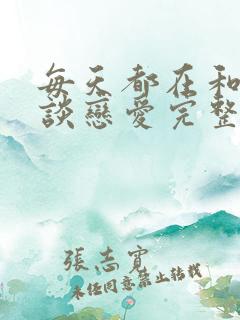 每天都在和
談戀愛完整
張志寶
未經同意禁止转载